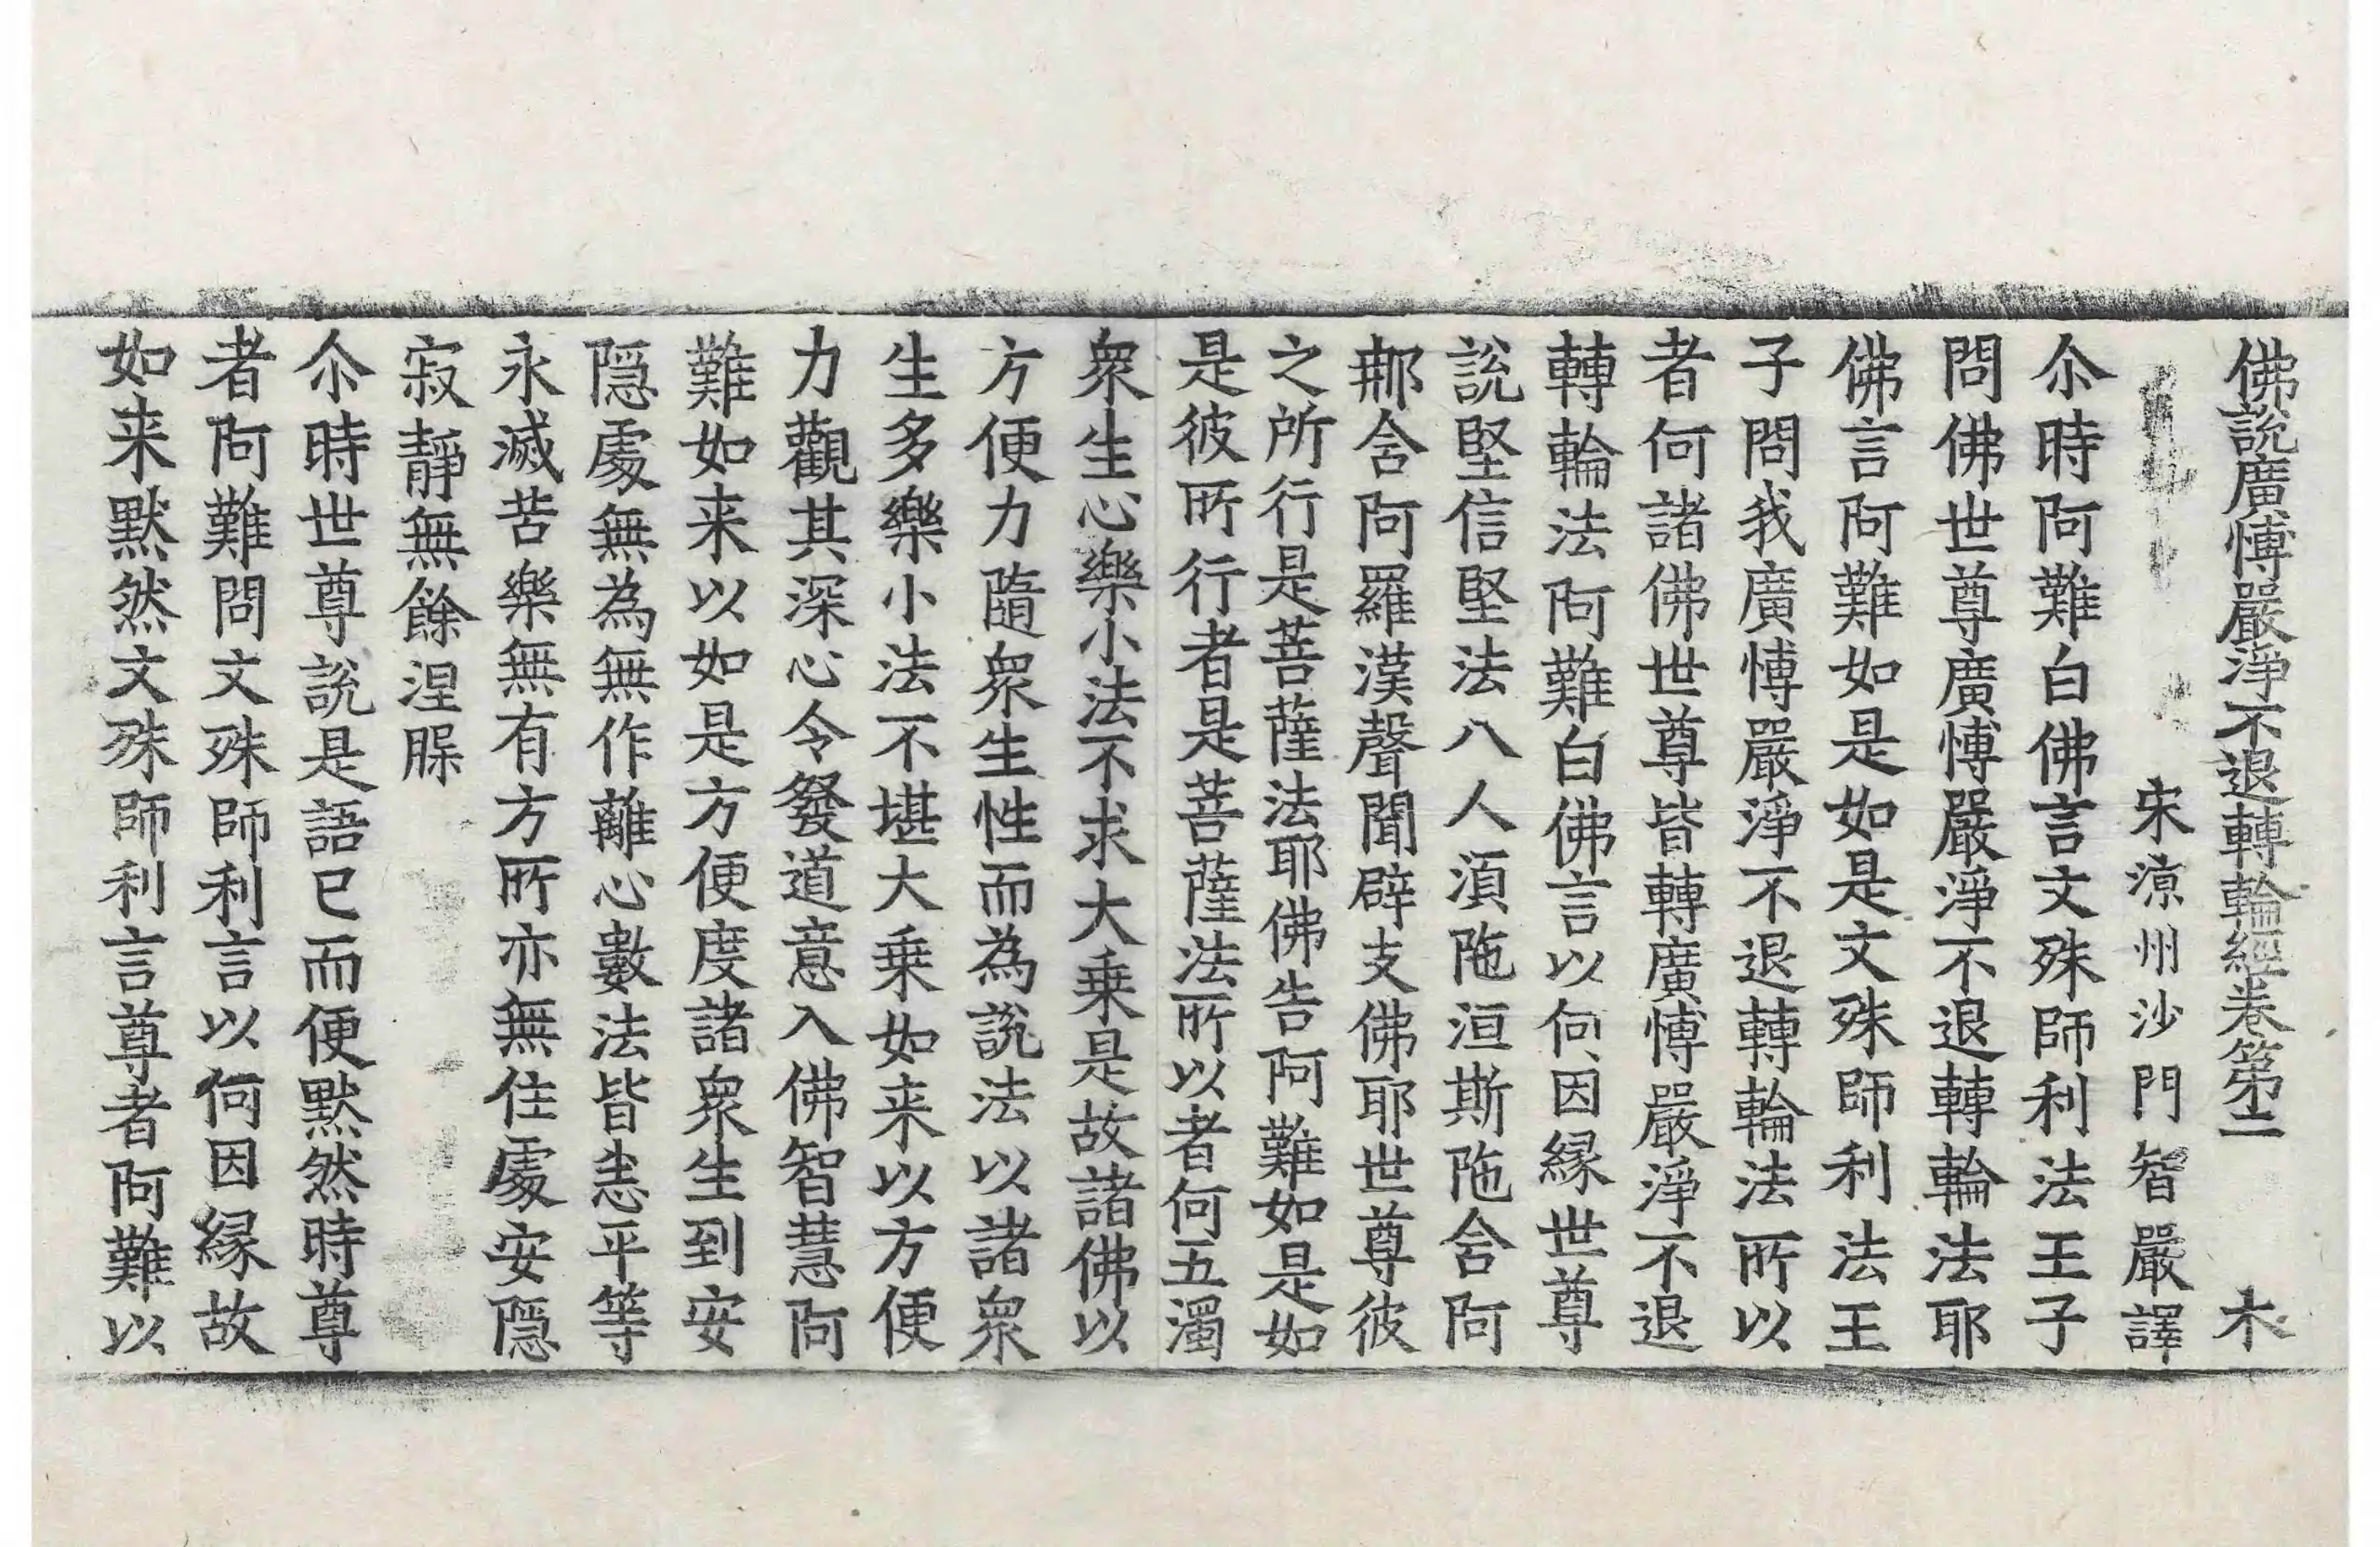 佛說廣愽嚴淨不退轉輪經卷第二　木
宋涼州沙門智嚴譯
尒時阿難白佛言文殊師利法王子
問佛世尊廣愽嚴淨不退轉輪法耶
佛言阿難如是如是文殊師利法王
子問我廣愽嚴淨不退轉輪法所以
者何諸佛世尊皆轉廣愽嚴淨不退
轉輪法阿難白佛言以何因縁世尊
說堅信堅法八人湏陁洹斯陁含阿
那含阿羅漢聲聞辟支佛耶世尊彼
之所行是菩薩法耶佛告阿難如是如
是彼所行者是菩薩法所以者何五濁
衆生心樂小法不求大乗是故諸佛以
方便力隨衆生性而為說法以諸衆
生多樂小法不堪大乗如来以方便
力觀其深心令發道意入佛智慧阿
難如来以如是方便度諸衆生到安
隱處無為無作離心數法皆悉平等
永滅苦樂無有方所亦無住處安隱
寂靜無餘涅槃
尒時世尊說是語已而便默然時尊
者阿難問文殊師利言以何因縁故
如来默然文殊師利言尊者阿難以